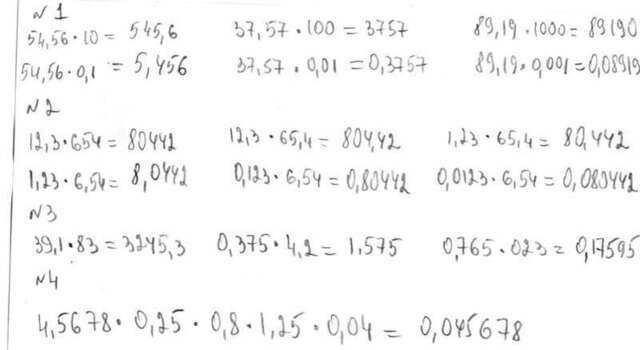 №1
54,56 · 10 = 545,6 37,57 · 100 = 3757 89,19 · 1000 = 89190
54,56 · 0,1 = 5,456 37,57 · 0,01 = 0,3757 89,19 · 0,001 = 0,08919
№2
12,3 · 654 = 80442 12,3 · 65,4 = 804,42 1,23 · 65,4 = 80,442
1,23 · 6,54 = 8,0442 0,123 · 6,54 = 0,80442 0,0123 · 6,54 = 0,080442
№3
39,1 · 83 = 3245,3 0,375 · 4,2 = 1,575 0,765 · 023 = 0,17595
№4
4,5678 · 0,25 · 0,8 · 1,25 · 0,04 = 0,045678